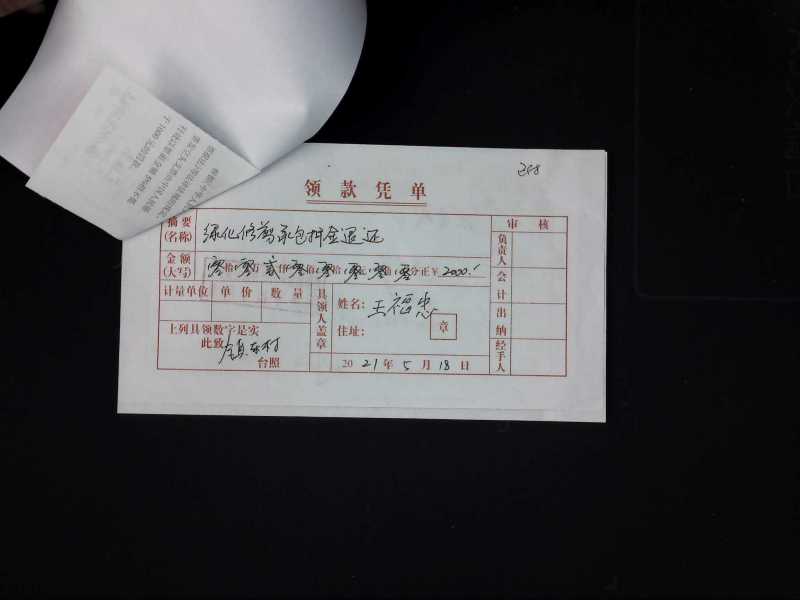 领款凭单
摘要(名称) 绿化修剪承包押金退还
审核
金额(大写) 零拾零万贰仟零佰零拾零元零角零分正至2000.-
负责人
计量单位 单价 数量
具领人盖章
姓名: 王福忠
会计
住址:
章
出纳
上列具领数字是实
此致
台照
2021年5月18日
经手人